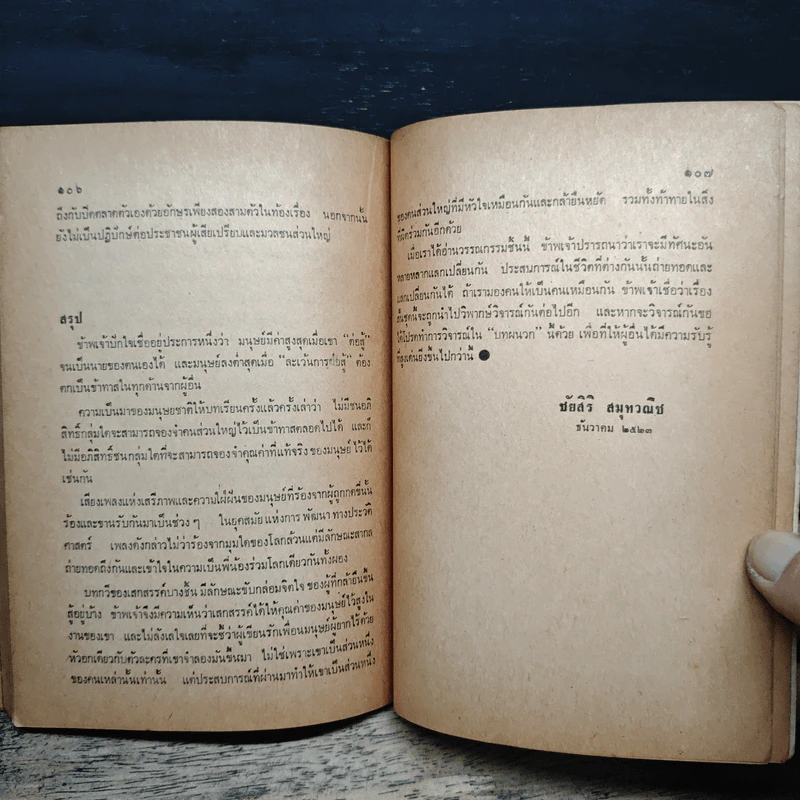 ๑๐๖
ถึงกับบีดตลาดตัวเองด้วยอักษรเพียงสองสามตัวในท้องเรื่อง นอกจากนั้น
ยังไม่เป็นปฏิปักษ์ต่อประชาชนผู้เสียเปรียบและมวลชนส่วนใหญ่
สรุป
ข้าพเจ้าปักใจเชื่ออยู่ประการหนึ่งว่า มนุษย์มีค่าสูงสุดเมื่อเขา "ต่อสู้"
จนเป็นนายของตนเองได้ และมนุษย์ลงต่ำสุดเมื่อ "ละเว้นการต่อสู้" ต้อง
ตกเป็นข้าทาสในทุกด้านจากผู้อื่น
ความเป็นมาของมนุษยชาติให้บทเรียนครั้งแล้วครั้งเล่าว่า ไม่มีชนอภิ
สิทธิ์กลุ่มใดจะสามารถจองจำคนส่วนใหญ่ไว้เป็นข้าทาสตลอดไปได้ และก็
ไม่มีอภิสิทธิ์ชนกลุ่มใดที่จะสามารถจองจำคุณค่าที่แท้จริงของมนุษย์ไว้ได้
เช่นกัน
เสียงเพลงแห่งเสรีภาพและความใฝ่ฝันของมนุษย์ที่ร้องจากผู้ถูกกดขี่นั้น
ร้องและขานรับกันมาเป็นช่วง ๆ ในยุคสมัยแห่งการพัฒนาทางประวัติ
ศาสตร์ เพลงดังกล่าวไม่ว่าร้องจากมุมใดของโลกล้วนแต่มีลักษณะสากล
ถ่ายทอดถึงกันและเข้าใจในความเป็นพี่น้องร่วมโลกเดียวกันทั้งผอง
บทกวีของเสกสรรค์บางชิ้น มีลักษณะขับกล่อมจิตใจของผู้ที่กล้ายืนขึ้น
สู้อยู่บ้าง ข้าพเจ้าจึงมีความเห็นว่าเสกสรรค์ได้ให้คุณค่าของมนุษย์ไว้สูงใน
งานของเขา และไม่ลังเลใจเลยที่จะชี้ว่าผู้เขียนรักเพื่อนมนุษย์ผู้ยากไร้ด้วย
หัวอกเดียวกับตัวละครที่เขาจำลองมันขึ้นมา ไม่ใช่เพราะเขาเป็นส่วนหนึ่ง
ของคนเหล่านั้นเท่านั้น แต่ประสบการณ์ที่ผ่านมาทำให้เขาเป็นส่วนหนึ่ง
๑๐๗
ของคนส่วนใหญ่ที่มีหัวใจเหมือนกันและกล้ายืนหยัด รวมทั้งท้าทายในสิ่ง
ที่ผิดร่วมกันอีกด้วย
เมื่อเราได้อ่านวรรณกรรมชิ้นนี้ ข้าพเจ้าปรารถนาว่าเราจะมีทัศนะอัน
หลายหลากแลกเปลี่ยนกัน ประสบการณ์ในชีวิตที่ต่างกันนั้นถ่ายทอดและ
แลกเปลี่ยนกันได้ ถ้าเรามองคนให้เป็นคนเหมือนกัน ข้าพเจ้าเชื่อว่าเรื่อง
สั้นชุดนี้จะถูกนำไปวิพากษ์วิจารณ์กันต่อไปอีก และหากจะวิจารณ์กันขอ
ได้โปรดทำการวิจารณ์ใน "บทผนวก" นี้ด้วย เพื่อที่ให้ผู้อื่นได้มีความรับรู้
ที่สูงเด่นยิ่งขึ้นไปกว่านี้ ●
ชัยสิริ สมุทวณิช
ธันวาคม ๒๕๒๓